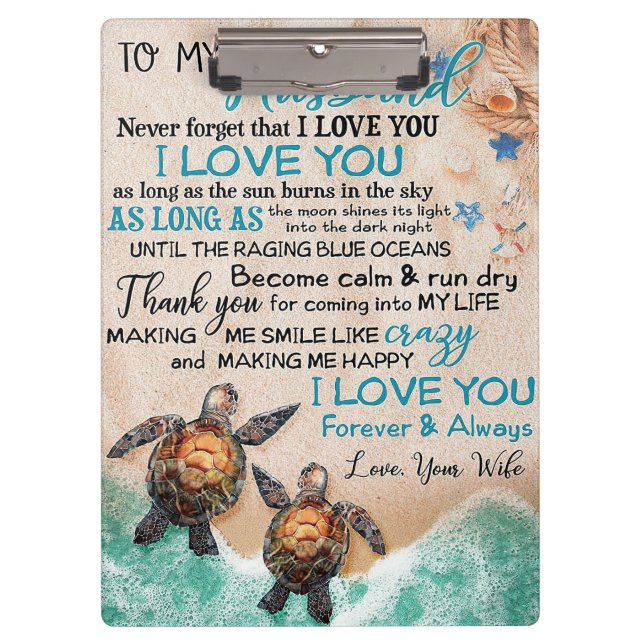 TO MY
Husband
Never forget that I LOVE YOU
I LOVE YOU
as long as the sun burns in the sky
AS LONG AS the moon shines its light
into the dark night
UNTIL THE RAGING BLUE OCEANS
Become calm & run dry
Thank you for coming into MY LIFE
MAKING ME SMILE LIKE crazy
and MAKING ME HAPPY
I LOVE YOU
Forever & Always
Love, Your Wife